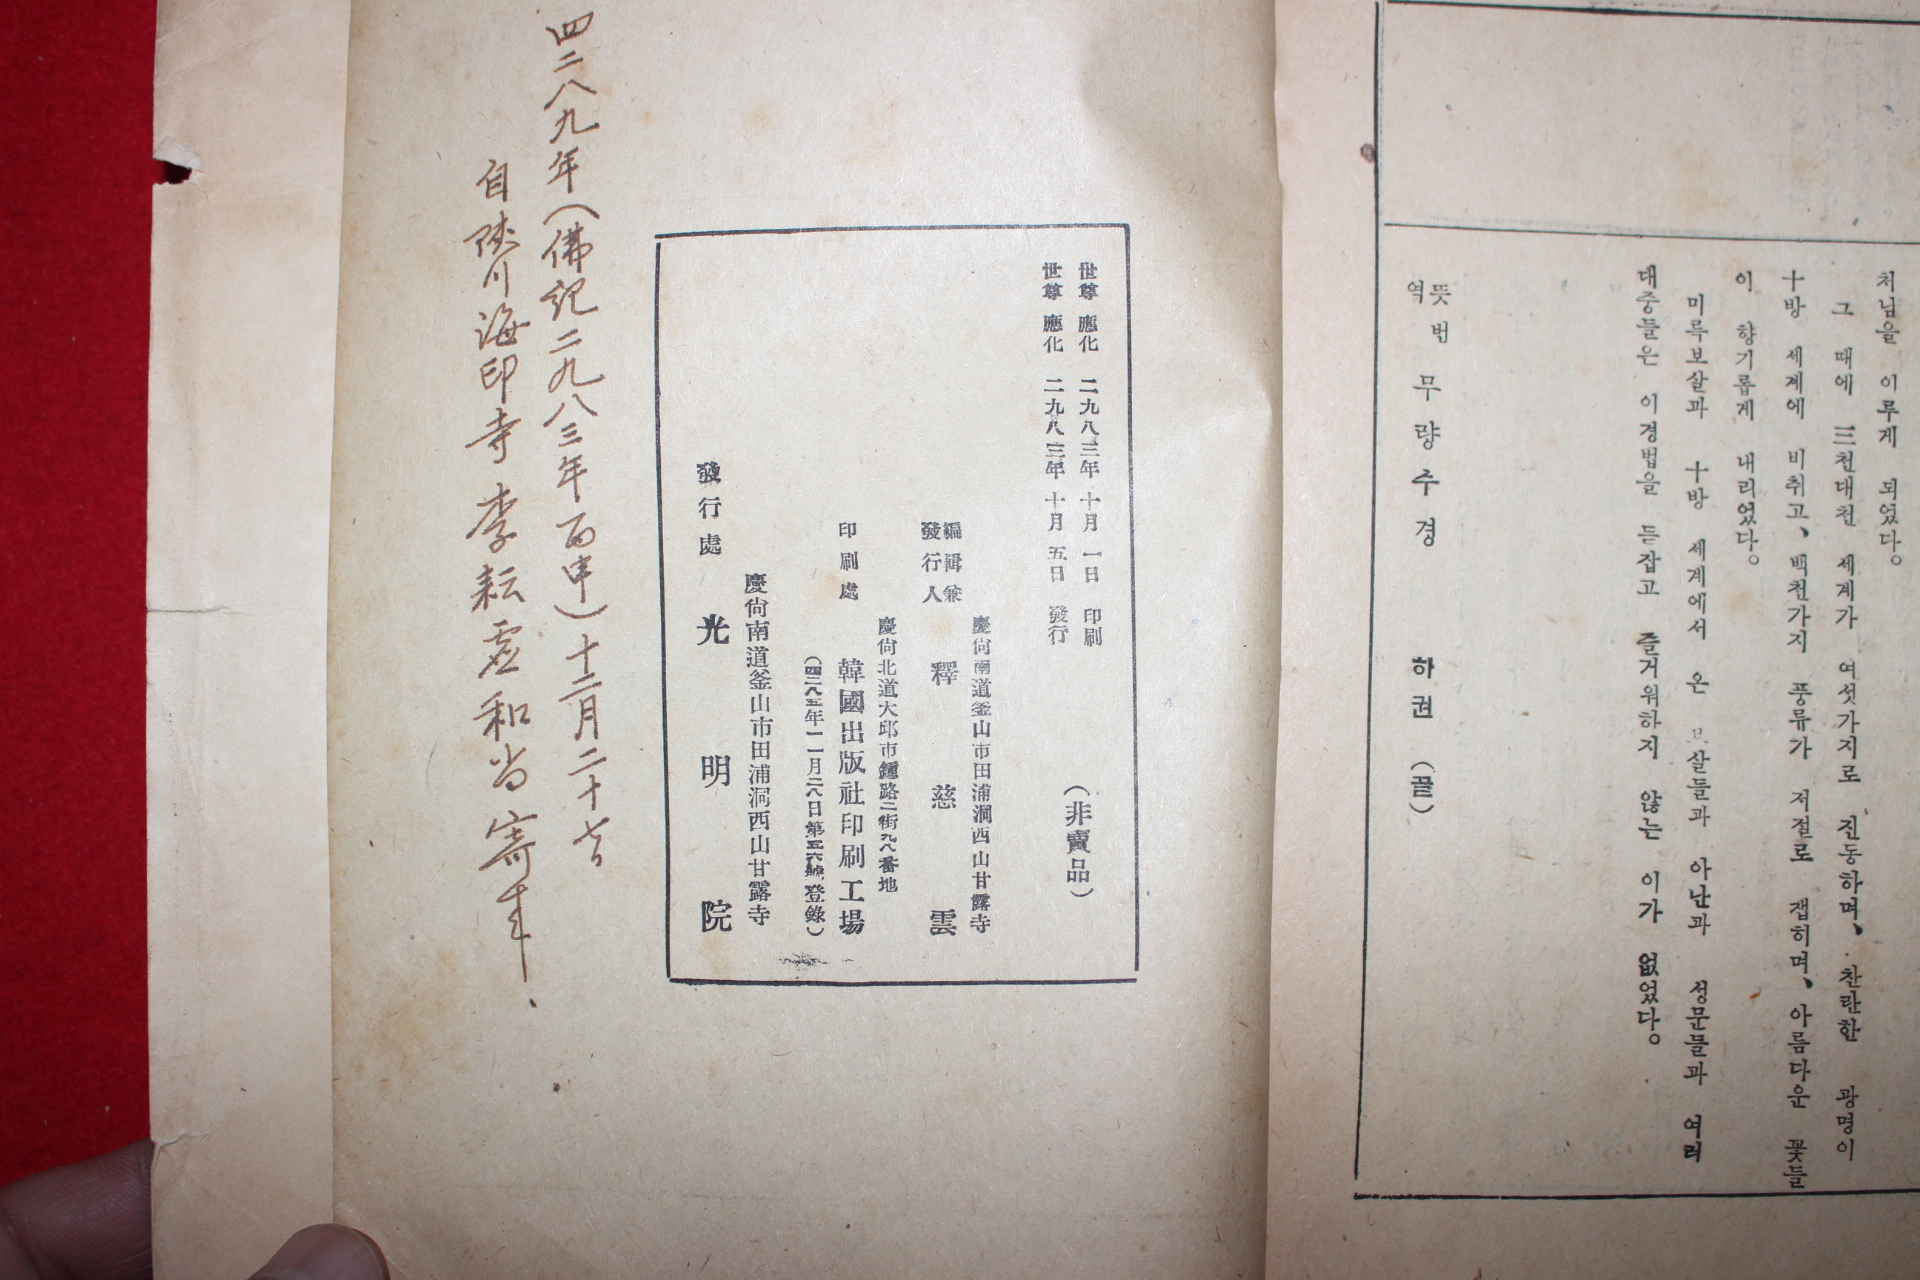 처님을 이루게 되었다。
그 때에 三천대천 세계가 여섯가지로 진동하며、찬란한 광명이
十방 세계에 비취고、백천가지 풍류가 저절로 잽히며、아름다운 꽃들
이 향기롭게 내리었다。
미륵보살과 十방 세계에서 온 보살들과 아난과 성문들과 여러
대중들은 이경법을 듣잡고 즐거워하지 않는 이가 없었다。
뜻번역 무량주경 하권 (끝)
世尊應化 二九八三年 十月 一日 印刷
世尊應化 二九八三年 十月 五日 發行
(非賣品)
慶尙南道釜山市田浦洞西山甘露寺
編輯兼
發行人 釋慈雲
慶尙北道大邱市鍾路二街九八番地
印刷處 韓國出版社印刷工場
(四二八五年一一月二八日第五六號登錄)
慶尙南道釜山市田浦洞西山甘露寺
發行處 光明院
四二八九年(佛記二九八三年丙申)十二月二十七
自陜川海印寺李耘虛和尙寄來.